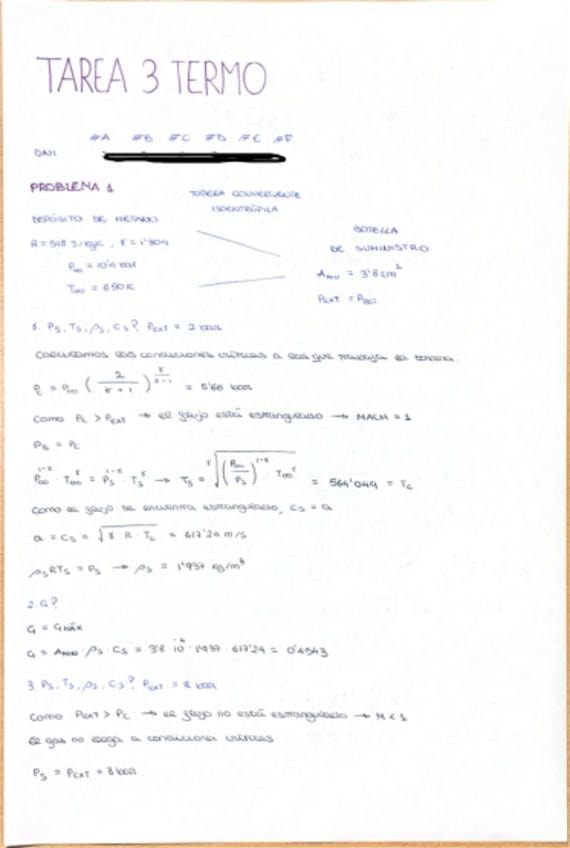 TAREA 3 TERMO
#A #B #C #D #E #F
DNI
PROBLEMA 1
TOBERA CONVERGENTE
ISOENTRÓPICA
DEPÓSITO DE METANO
BOTELLA
R = 518 J/kgK , γ = 1'304
DE SUMINISTRO
P∞ = 10'4 bar
A = 3'8 cm²
T∞ = 650 K
PEXT = PBOT
1. Ps, Ts, ρs, Cs? PEXT = 2 bar
Calculamos las condiciones críticas a las que trabaja la tobera.
Pc = P∞ (2 / (γ+1))^(γ/(γ-1)) = 5'68 bar
Como Pc > PEXT → el flujo está estrangulado → MACH = 1
Ps = Pc
P∞^(1-γ) · T∞^γ = Ps^(1-γ) · Ts^γ → Ts = γ√((P∞/Ps)^(1-γ) · T∞^γ) = 564'049 = Tc
Como el flujo se encuentra estrangulado, Cs = a
a = Cs = √(γ · R · Tc) = 617'24 m/s
ρsRTs = Ps → ρs = 1'937 kg/m³
2. G?
G = GMÁX
G = A ρs · Cs = 3'8 · 10⁻⁴ · 1'937 · 617'24 = 0'4543
3. Ps, Ts, ρs, Cs? PEXT = 8 bar
Como PEXT > Pc → el flujo no está estrangulado → M < 1
El gas no llega a condiciones críticas
Ps = PEXT = 8 bar